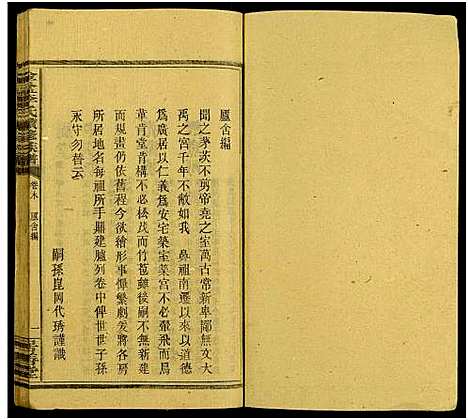 廬舍編
聞之茅茨不剪帝堯之室萬古常新卑鄙無文大
禹之宮千年不敝如我　鼻祖南遷以來以道德
為廣居以仁義為安宅築室築宮不必翬飛而鳥
革肯堂肯構不必松茂而竹苞雖後嗣不無新建
而規畫仍依舊程今欲繪形事傳繁劇爰將各祖
所居地名每祖所于鼎建臚列卷中俾世世子孫
永守勿替云
嗣孫崑岡代琇謹識
李氏續修族譜
卷末　廬舍編
一